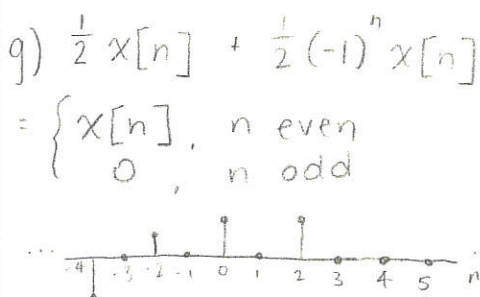 g) 1/2 x[n] + 1/2 (-1)^n x[n]
= { x[n], n even
0, n odd
... -4 -3 -2 -1 0 1 2 3 4 5 n